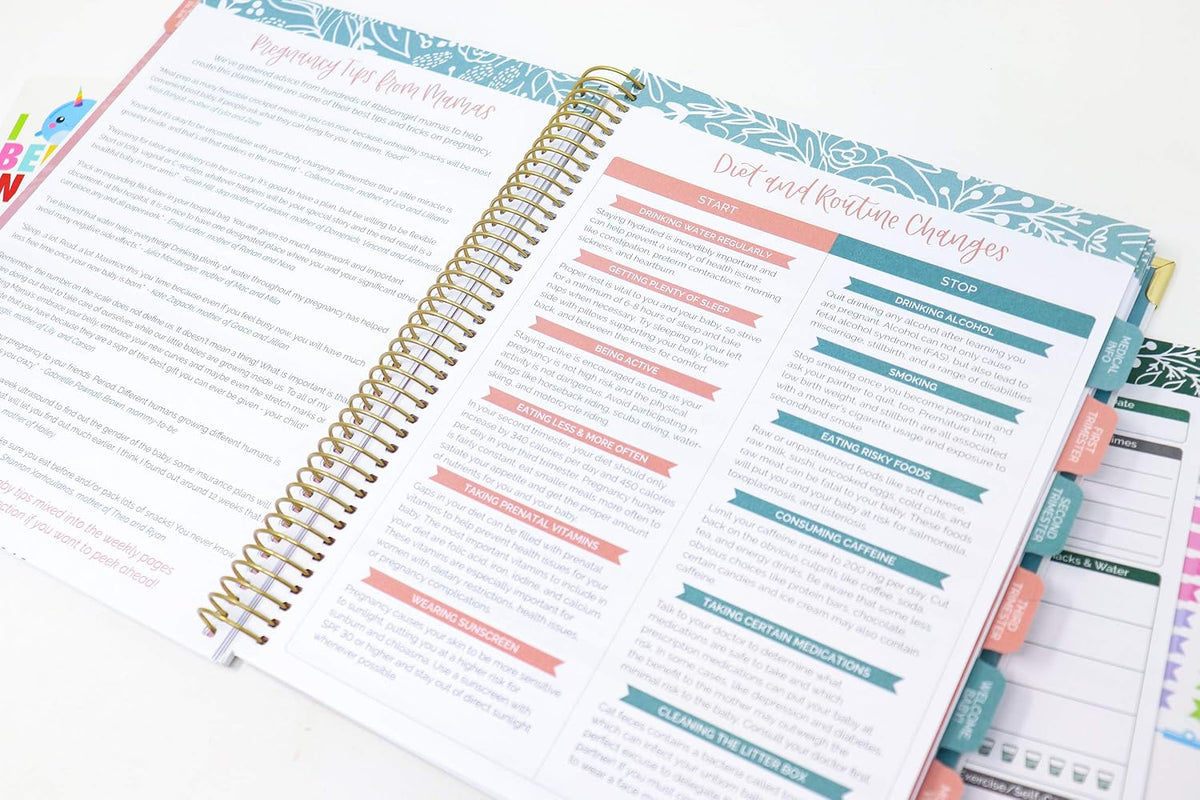 Pregnancy Tips from Mamas
We've gathered advice from hundreds of #bloomgirl mamas to help
create this planner! Here are some of their best tips and tricks on pregnancy.
"Meal prep as many freezable crockpot meals as you can now, because unhealthy snacks will be most
convenient post baby. If people ask what they can bring for you, tell them, food!" -
"Know that it's okay to be uncomfortable with your body changing. Remember that a little miracle is
growing inside, and that's all that matters in the moment." - Colleen Lenzini, mother of Leo and Lilliana
"Preparing for labor and delivery can be so scary. It's good to have a plan, but be willing to be flexible.
Short or long, vaginal or C-section, whatever happens will be your special story and the end result is a
beautiful baby in your arms!" - Sarah Hill,
"Pack an expanding file folder in your hospital bag. You are given so much paperwork and important
documents at the hospital. It is so nice to have one designated place where you and your significant other
can place any and all paperwork." -
"I've learned that water helps everything! Drinking plenty of water throughout my pregnancy has helped
avoid many negative side effects." -
"Sleep, a lot. Read a lot. Maximize this you time because even if you feel busy now, you will have much
less free time once your new baby is born." - Katie Zagarri, mother of Grace and Jillian
the number on the scale does not define us. It doesn't mean a thing! What is important is that
doing our best to take care of ourselves while our little babes are growing inside us. To all of my
Mama's: embrace your new curves and maybe even the stretch marks or
that you have because they are a sign of the best gift you can ever be given - your child!"
mother of Lily and Carson
your pregnancy to your friends. Period. Different humans growing different humans is
you crazy." - Gabrielle Powell-Brown, mommy-to-be
week ultrasound to find out the gender of the baby, some insurance plans will
that will let you find out much earlier. I think I found out around 12 weeks that
mother of Hailey
sure you eat before and/or pack lots of snacks! You never know
mother of Theo and Ryan
baby tips mixed into the weekly pages
section if you want to peek ahead!
Diet and Routine Changes
START
DRINKING WATER REGULARLY
Staying hydrated is incredibly important and
can help prevent a variety of health issues
like constipation, preterm contractions, morning
sickness, and heartburn.
GETTING PLENTY OF SLEEP
Proper rest is vital to you and your baby, so strive
for a minimum of 6-8 hours of sleep and take
naps when necessary. Try sleeping on your left
side with pillows supporting your belly, lower
back, and between the knees for comfort.
BEING ACTIVE
Staying active is encouraged as long as your
pregnancy is not high risk and the physical
activity is not dangerous. Avoid participating in
things like horseback riding, scuba diving, water-
skiing, and motorcycle riding.
EATING LESS & MORE OFTEN
In your second trimester, your diet should only
increase by 340 calories per day and only 450 calories
per day in your third trimester. Pregnancy hunger
is fairly constant, eat smaller meals more often to
satiate your appetite and get the proper amount
of nutrients for you and your baby.
TAKING PRENATAL VITAMINS
Gaps in your diet can be filled with prenatal
vitamins to help prevent health issues for your
baby. The most important vitamins to include in
your diet are folic acid, iron, iodine, and calcium.
These vitamins are especially important for
women with dietary restrictions, health issues,
or pregnancy complications.
WEARING SUNSCREEN
Pregnancy causes your skin to be more sensitive
to sunlight, putting you at a higher risk for
sunburn and chloasma. Use a sunscreen with
SPF 30 or higher and stay out of direct sunlight
whenever possible.
STOP
DRINKING ALCOHOL
Quit drinking any alcohol after learning you
are pregnant. Alcohol can not only cause
fetal alcohol syndrome (FAS), but also lead to
miscarriage, stillbirth, and a range of disabilities
SMOKING
Stop smoking once you become pregnant and
ask your partner to quit, too. Premature birth,
low birth weight, and stillbirth are all associated
with a mother's cigarette usage and exposure to
secondhand smoke.
EATING RISKY FOODS
Raw or unpasteurized foods like soft cheese,
raw milk, sushi, uncooked eggs, cold cuts, and
raw meat can be fatal to your baby. These foods
will put you and your baby at risk for salmonella,
toxoplasmosis and listeriosis.
CONSUMING CAFFEINE
Limit your caffeine intake to 200 mg per day. Cut
back on the obvious culprits like coffee, soda,
tea, and energy drinks. Be aware that some less
obvious choices like protein bars, chocolate,
certain candies and ice cream may also contain
caffeine.
TAKING CERTAIN MEDICATIONS
Talk to your doctor to determine what
medications are safe to take and which
prescription medications can put your baby at
risk. In some cases, like depression and diabetes,
the benefit to the mother may outweigh the
minimal risk to the baby. Consult your doctor first.
CLEANING THE LITTER BOX
Cat feces contain a bacteria called
which can infect your unborn baby
perfect excuse to delegate
partner! If you must
to wear a
MEDICAL
INFO
FIRST
TRIMESTER
SECOND
TRIMESTER
THIRD
TRIMESTER
WELCOME
BABY!
Snacks & Water